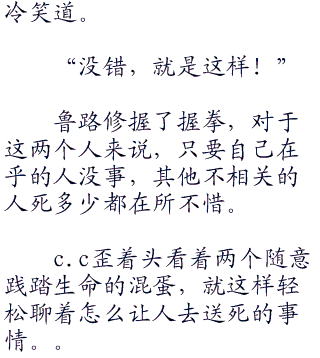 冷笑道。
“没错，就是这样！”
鲁路修握了握拳，对于
这两个人来说，只要自己在
乎的人没事，其他不相关的
人死多少都在所不惜。
c.c歪着头看着两个随意
践踏生命的混蛋，就这样轻
松聊着怎么让人去送死的事
情。。